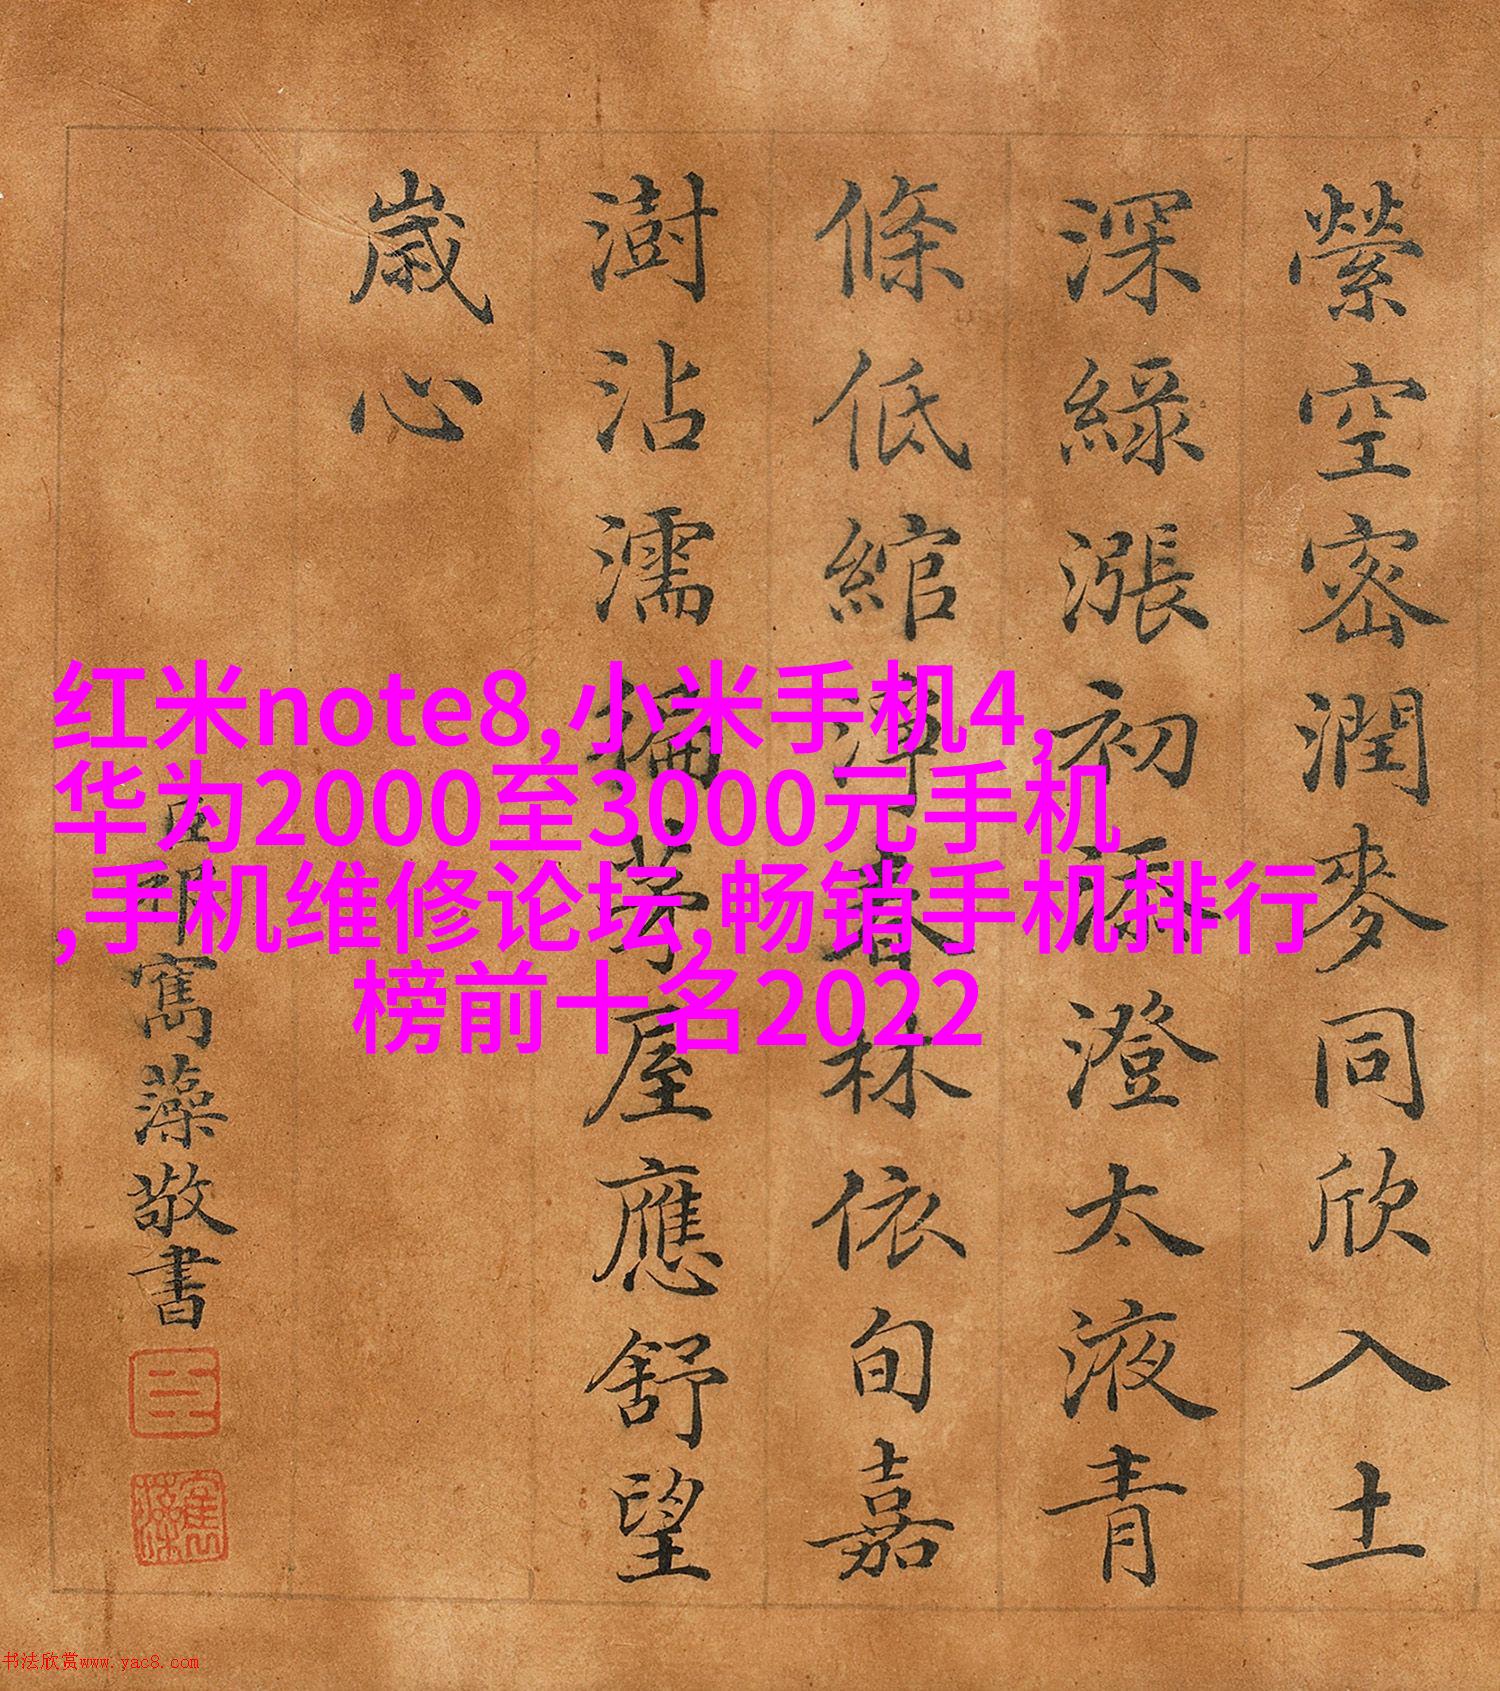 縈空密潤麥同欣入土
深綠漲初添澄太液青
條低綰春林依旬嘉
澍沾濡茅屋應舒望
歲心
臣祁寯藻敬書
臣
寯藻
红米note8,小米手机4,
华为2000至3000元手机
,手机维修论坛,畅销手机排行
榜前十名2022
书法欣赏www.yac8.com